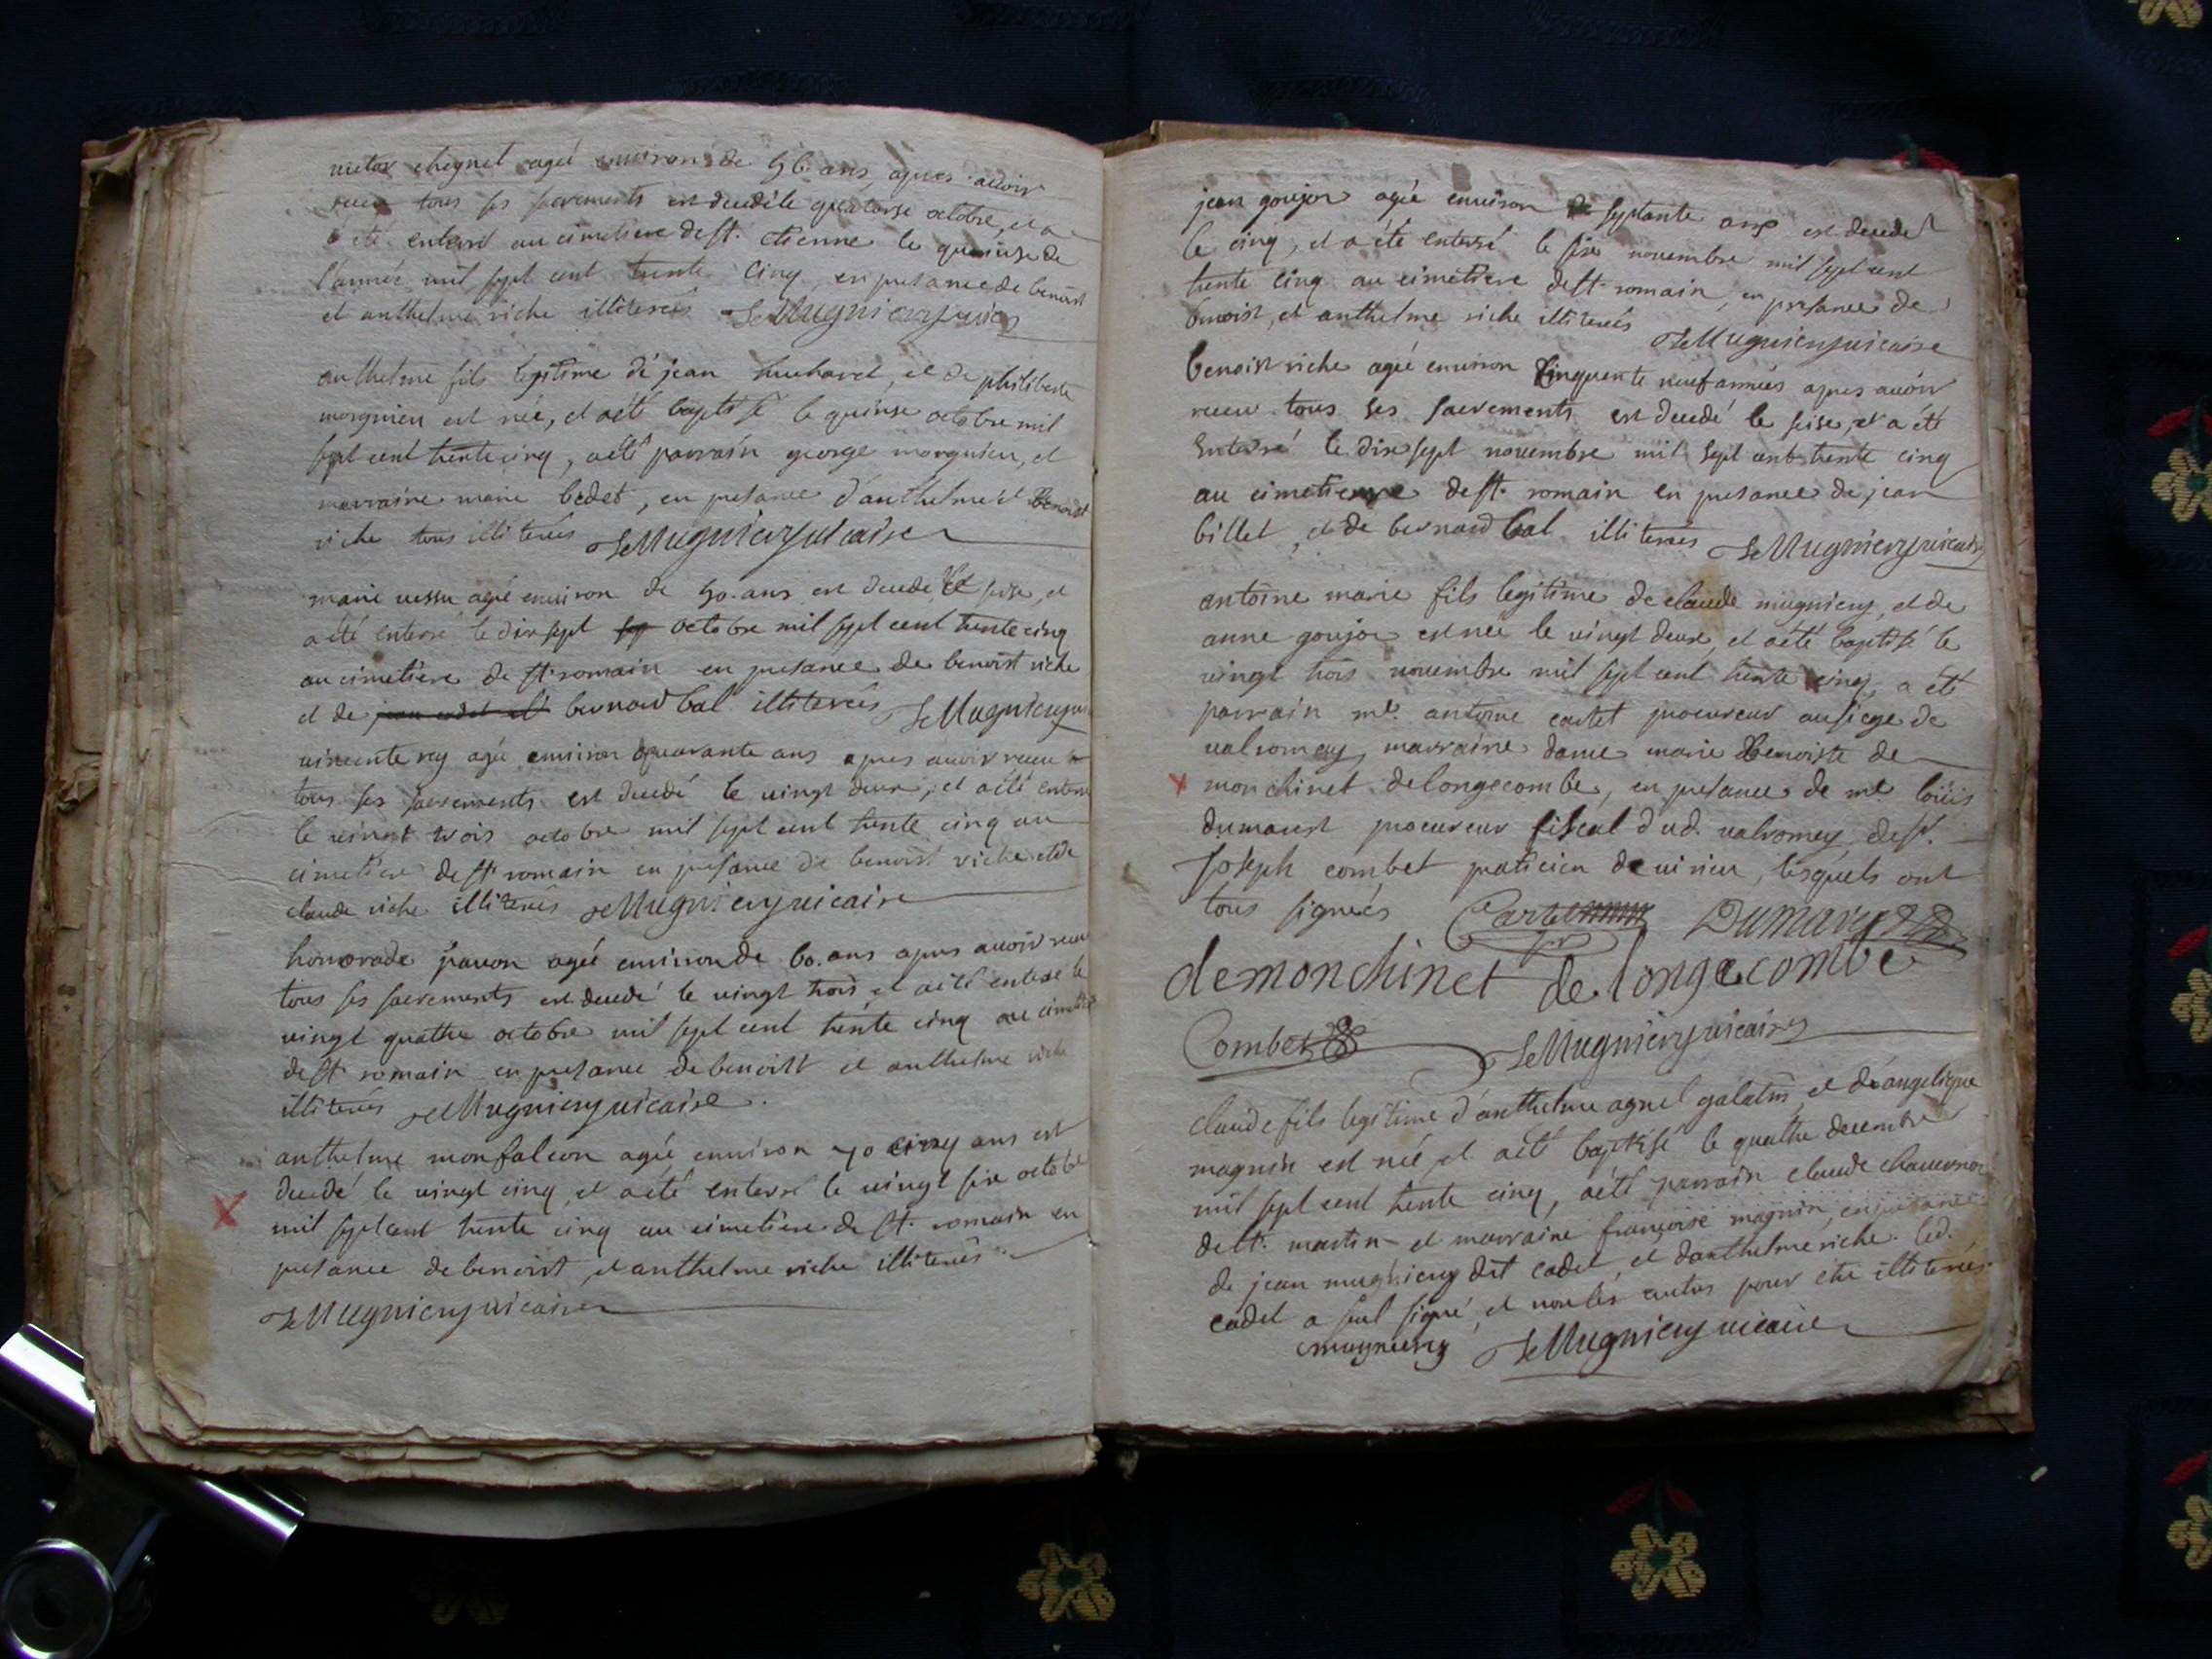 victor chegnet agé environ de 56 ans, apres avoir
receu tous ses sacrements est decedé le quatorse octobre, et a
été enterré au cimetiere de st. etienne le quinse de
l'année mil sept cent trente cinq, en presance de benoist
et anthelme riche illiterés JeMugnieryvicaire
anthelme fils legitime de jean et de philiberte
morgnieu est née, et a été baptisé le quinse octobre mil
sept cent trente cinq, a été parrain george morgnieu, et
marraine marie bedet, en presance d'anthelme et Benoist
riche tous illiterés JeMugnieryvicaire
marie vessu agée environ de 50. ans est decedé le seise, et
a été enterré le dix sept octobre mil sept cent trente cinq
au cimetiere de st. romain en presance de benoist riche
et de bernard bal illiterés JeMugniery
vincente rey agée environ quarante ans apres avoir receu
tous ses sacrements est decedé le vingt deux, et a été enterré
le vingt trois octobre mil sept cent trente cinq au
cimetiere de st. romain en presance de benoist riche et de
claude riche illiterés JeMugnieryvicaire
honorade pavon agée environ de 60. ans apres avoir receu
tous ses sacrements est decedé le vingt trois, et a été enterré le
vingt quatre octobre mil sept cent trente cinq au cimetiere
de st. romain en presance de benoist et anthelme riche
illiterés JeMugnieryvicaire.
anthelme monfalcon agée environ 70 cinq ans est
decedé le vingt cinq, et a été enterré le vingt six octobre
mil sept cent trente cinq au cimetiere de st. romain en
presance de benoist, et anthelme riche illiterés.
JeMugnieryvicaire
jean goujon agée environ de septante ans est decedé
le cinq, et a été enterré le six novembre mil sept cent
trente cinq au cimetiere de st. romain, en presance de
benoist, et anthelme riche illiterés JeMugnieryvicaire
benoist riche agée environ cinquente neuf années apres avoir
receu tous ses sacrements est decedé le seise, et a été
enterré le dix sept novembre mil sept cent trente cinq
au cimetierre de st. romain en presance de jean
billet, et de bernard bal illiterés JeMugnieryvicaire
antoine marie fils legitime de claude mugniery, et de
anne goujon est née le vingt deux, et a été baptisé le
vingt trois novembre mil sept cent trente cinq, a été
parrain me. antoine cartet procureur au siege de
valromey, marraine dame marie Benoiste de
monchinet de longecombe, en presance de me. loüis
dumarest procureur fiscal dud. valromey, de sr.
joseph combet praticien de virieu, lesquels ont
tous signeés Cartet Dumarest
demonchinet de longecombe
Combet JeMugnieryvicaire
claude fils legitime d'anthelme agnel galatin, et d'angelique
magnin est née, et a été baptisé le quatre decembre
mil sept cent trente cinq, a été parrain claude
de st. martin et marraine françoise magnin, en presance
de jean mugniery dit cadet, et d'anthelme riche. led.
cadet a seul signé, et non les autres pour etre illiterés.
cmugniery JeMugnieryvicaire